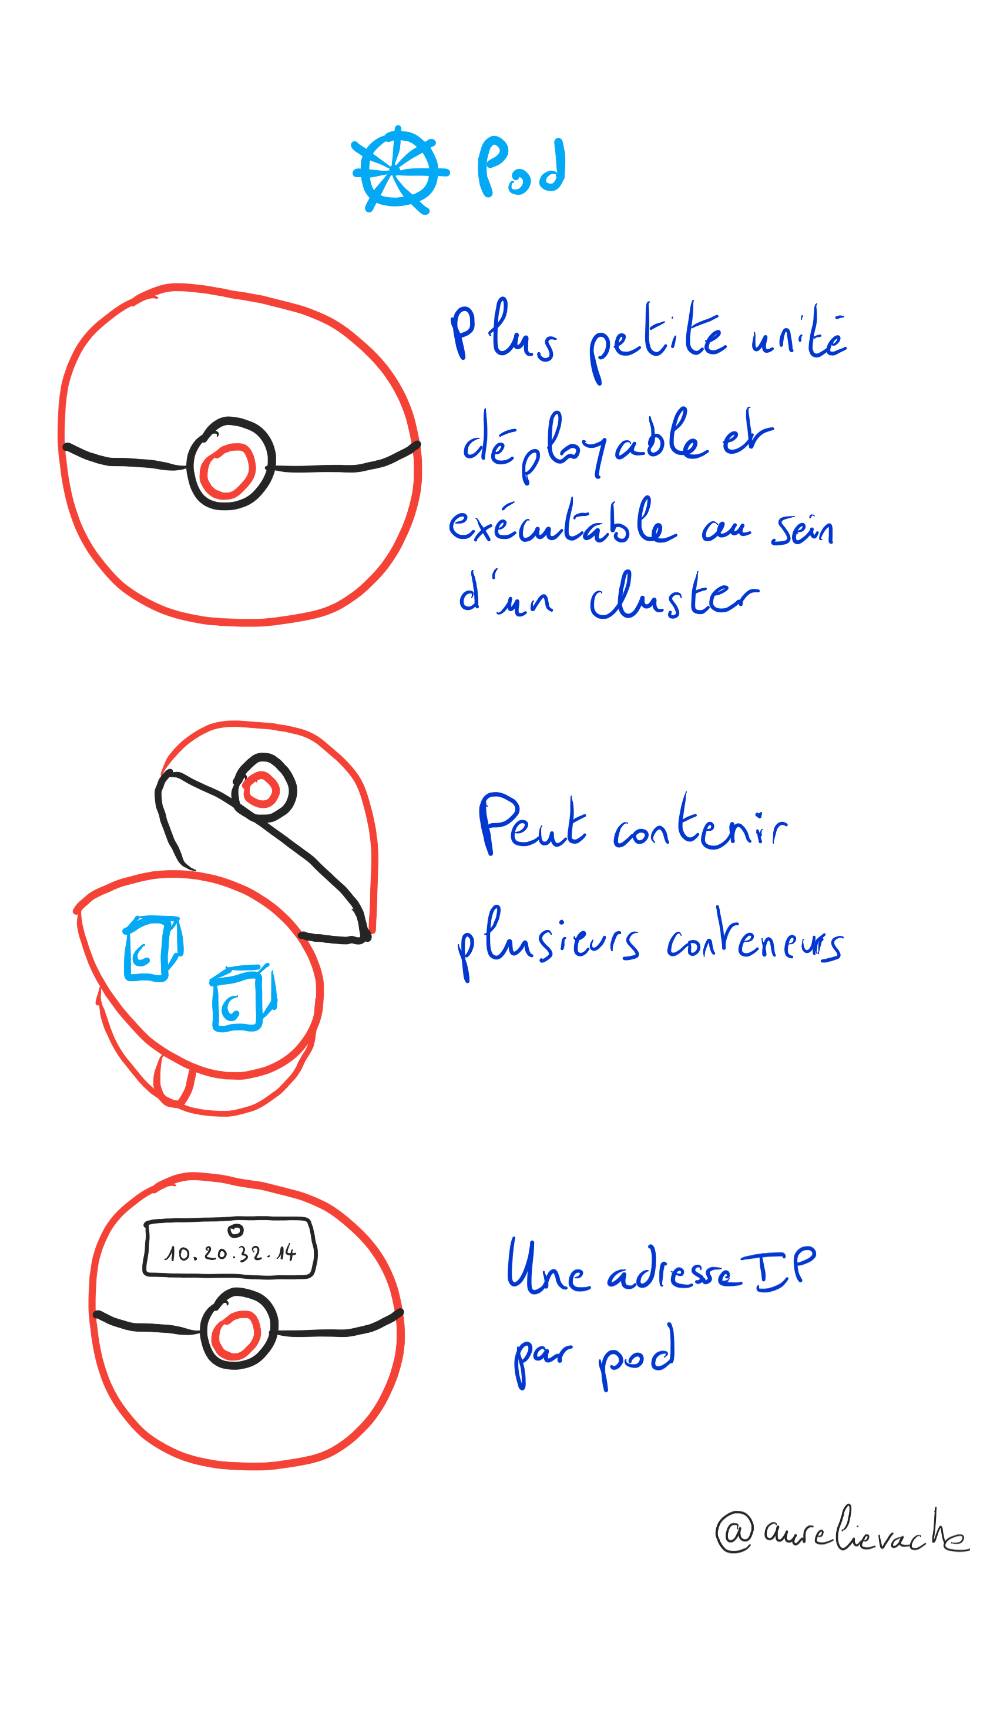 Pod
Plus petite unité
déployable et
exécutable au sein
d'un cluster
Peut contenir
plusieurs conteneurs
C
C
10.20.32.14
Une adresse IP
par pod
@aurelievache